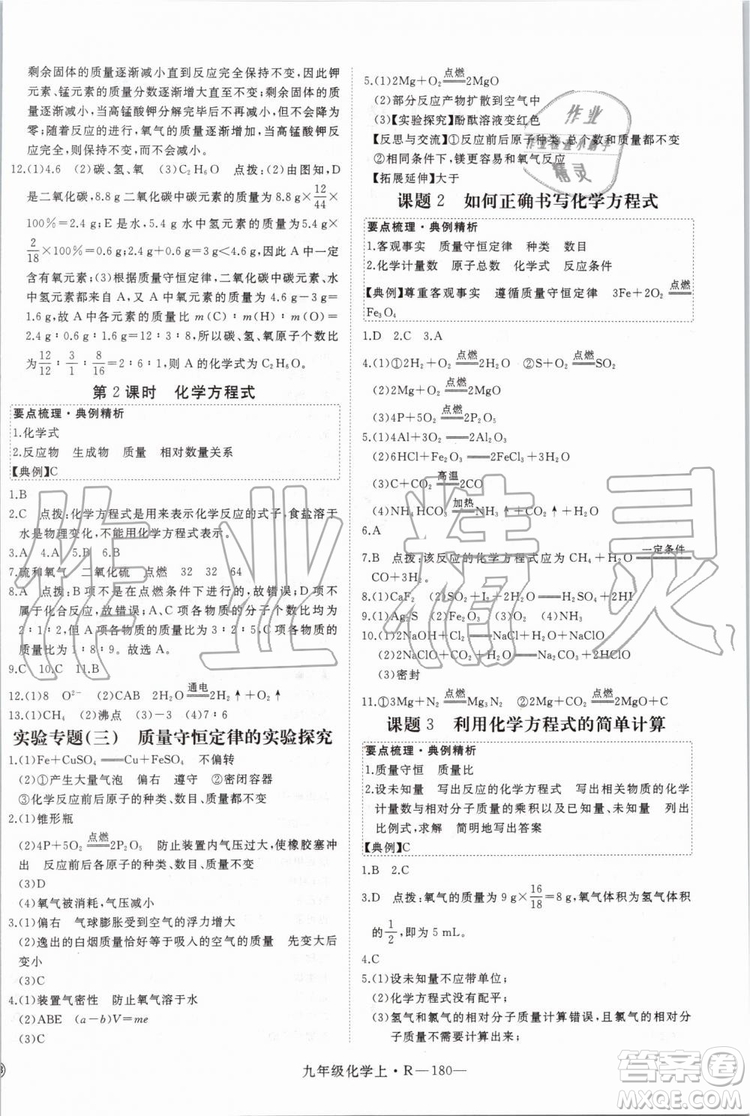 剩余固体的质量逐渐减小直到反应完全保持不变,因此钾
元素、锰元素的质量分数逐渐增大,氧元素的质量分数逐
渐减小,当高锰酸钾分解完毕后不再减小,也不会减小为
零;随着反应的进行,氧气的质量由零逐渐增大,当高锰酸钾反
应完全后保持不变。
12.(1)4.6 (2)碳、氢、氧 点拨:由图知,
二氧化碳的质量是8.8 g,碳元素的质量是8.8 g×12/44
×100%=2.4 g;E是水,水中氢元素的质量是5.4 g×
2/18×100%=0.6 g,2.4 g+0.6 g<4.6 g,所以甲中一定
含有氧元素。(3)根据质量守恒定律,二氧化碳中碳元素、
水中氢元素的质量就是甲中碳元素、氢元素的质量,氧元素的质量=
1.6 g,甲中碳、氢、氧元素的质量比 m(C)∶m(H)∶m(O)=
2.4 g∶0.6 g∶1.6 g=12∶3∶8,碳、氢、氧原子的个数比为
12/12∶3/1∶8/16=2∶6∶1,所以甲的化学式为 C₂H₆O。
第2课时 化学方程式
要点梳理·典例精析
1.化学式
2.反应物 生成物 质量 相对数量关系
【典例】C
1.B
2.C 点拨:化学方程式是用来表示化学反应的式子,食盐溶于
水是物理变化,不能用化学方程式表示。
3.A 4.A 5.B 6.B
7.硫和氧气 二氧化硫 点燃 32 32 64
8.A 点拨:B项不是在点燃条件下进行的,故错误;D项不
属于化合反应,故错误;A、C项各物质的分子个数比均为
2∶1∶2,但A项各物质的质量比为3∶2∶5,C项各物质的
质量比为1∶8∶9。故选A。
9.C 10.C 11.B
12.(1)8 O²⁻ (2)CAB 2H₂O 通电 2H₂↑+O₂↑
13.(1)CH₄ (2)沸点 (3)B (4)7∶6
实验专题(三) 质量守恒定律的实验探究
1.(1)Fe+CuSO₄══Cu+FeSO₄ 不偏转
(2)①产生大量气泡 偏右 遵守 ②密闭容器
③化学反应前后原子的种类、数目、质量都不变
2.(1)锥形瓶
(2)4P+5O₂ 点燃 2P₂O₅ 防止装置内气压过大,使橡胶塞冲
出 反应前后各原子的种类、数目、质量不变
(3)D
(4)氧气被消耗,气压变小
3.(1)偏右 气球膨胀受到空气的浮力增大
(2)逸出的白烟质量恰好等于吸入的空气的质量 先变大后
变小
4.(1)装置气密性 防止氧气溶于水
(2)ABE (a-b)V=me
(3)C
5.(1)2Mg+O₂ 点燃 2MgO
(2)部分反应产物扩散到空气中
(3)【实验探究】酚酞溶液变红色
【反思与交流】①反应前后原子种类、总个数和质量都不变
②相同条件下,镁更易与氧气反应
【拓展延伸】大于
课题2 如何正确书写化学方程式
要点梳理·典例精析
1.客观事实 质量守恒定律 种类 数目
2.化学计量数 原子总数 化学式 反应条件
【典例】尊重客观事实 遵循质量守恒定律 3Fe+2O₂ 点燃
Fe₃O₄
1.D 2.C 3.A
4.(1)①2H₂+O₂ 点燃 2H₂O ②S+O₂ 点燃 SO₂
(2)2Mg+O₂ 点燃 2MgO
(3)4P+5O₂ 点燃 2P₂O₅
5.(1)4Al+3O₂══2Al₂O₃
(2)6HCl+Fe₂O₃══2FeCl₃+3H₂O
(3)C+CO₂ 高温 2CO
(4)NH₄HCO₃ 加热 NH₃↑+CO₂↑+H₂O
6.A
7.B 点拨:该反应的化学方程式为CH₄+H₂O 一定条件
CO+3H₂。
8.(1)CaF₂ (2)SO₂+I₂+2H₂O
9.(1)Mg (2)Fe₂O₃ (3)O₂ (4)NH₃
10.(1)2NaOH+Cl₂══NaCl+H₂O+NaClO
(2)2NaClO+CO₂+H₂O══Na₂CO₃+2HClO
(3)密封
11.①3Mg+N₂ 点燃 Mg₃N₂ ②2Mg+CO₂ 点燃 2MgO+C
课题3 利用化学方程式的简单计算
要点梳理·典例精析
1.质量守恒 质量比
2.设未知量 写出反应的化学方程式 写出相关物质的化学
计量数与相对分子质量的乘积以及已知量、未知量 列出
比例式,求解 简明地写出答案
【典例】C
1.B 2.C
3.D 点拨:氧气的质量为9 g×16/18=8 g,氧气体积为氢气体积
的1/2,即为5 mL。
4.C
5.(1)设未知量不应带单位;
(2)化学方程式没有配平;
(3)氢气和氯气的相对分子质量计算错误,氯化氢的相对分
子质量不应用乘号连接。
九年级化学上·R—180—
作业精灵
答案圈
MXQE.COM